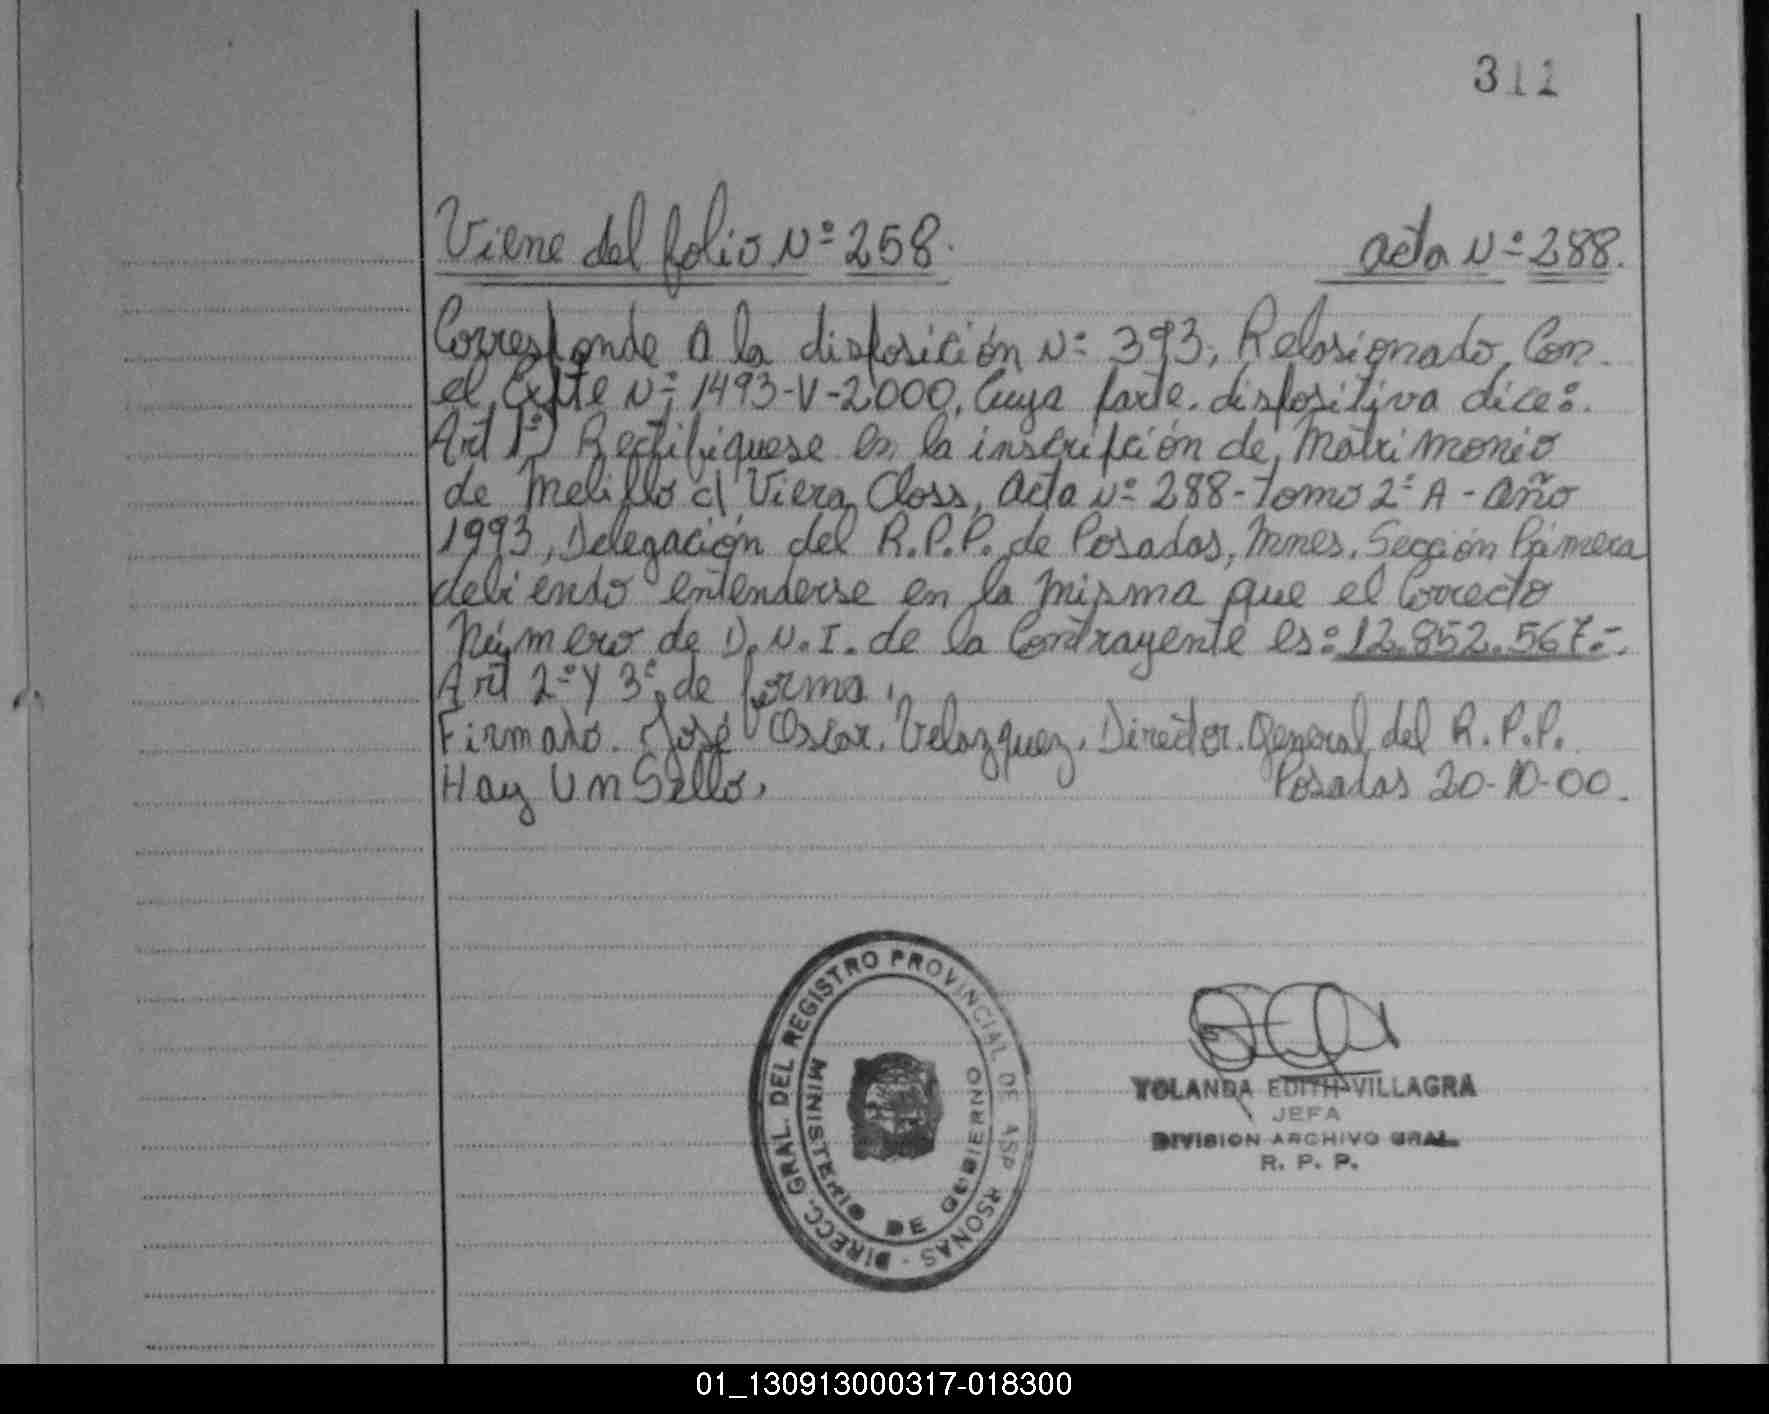 312
Viene del folio Nº 258. Acta Nº 288.
Corresponde a la disposición Nº 393, Relasionado, Con
el Expte Nº 1493-V-2000, Cuya parte. dispositiva dice:.
Art 1º) Rectifiquese en la inscripción de Matrimonio
de Melillo c/ Viera Closs, Acta Nº 288-Tomo 2º A - año
1993, Delegación del R.P.P. de Posadas, Mnes. Sección Primera
debiendo entenderse en la misma que el Correcto
Número de D.N.I. de la Contrayente es: 12.852.567.-
Art 2º y 3º de forma.
Firmado. José Oscar. Velazquez. Director. General del R.P.P.
Hay Un Sello. Posadas 20-10-00.
DIRECC. GRAL. DEL REGISTRO PROVINCIAL DE RSONAS -
MINISTERIO DE GOBIERNO
YOLANDA EDITH VILLAGRA
JEFA
DIVISION ARCHIVO GRAL.
R. P. P.
01_130913000317-018300